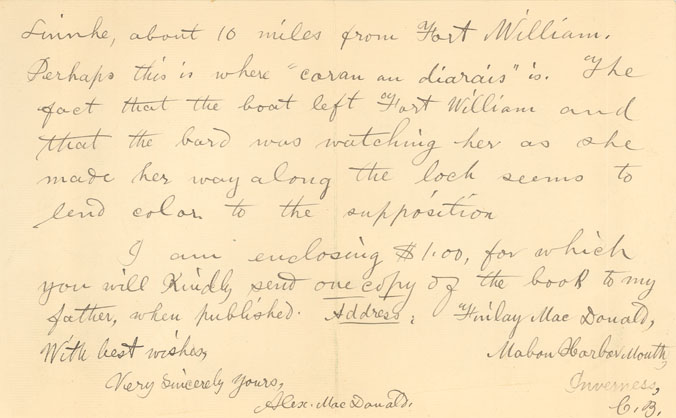 Linnhe, about 10 miles from Fort William.
Perhaps this is where "coran an diarais" is. The
fact that the boat left Fort William and
that the bard was watching her as she
made her way along the loch seems to
lend color to the supposition
I am enclosing $1.00, for which
you will Kindly send one copy of the book to my
father, when published. Address: Finlay Mac Donald,
With best wishes, Mabou Harbor Mouth,
Very Sincerely Yours, Inverness,
Alex. Mac Donald. C. B.